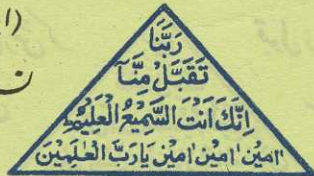 رَبَّنَا
تَقَبَّلْ مِنَّآ
اِنَّكَ اَنْتَ السَّمِيْعُ الْعَلِيْمُ
اٰمِيْن اٰمِيْن اٰمِيْن يَارَبَّ الْعٰلَمِيْنَ